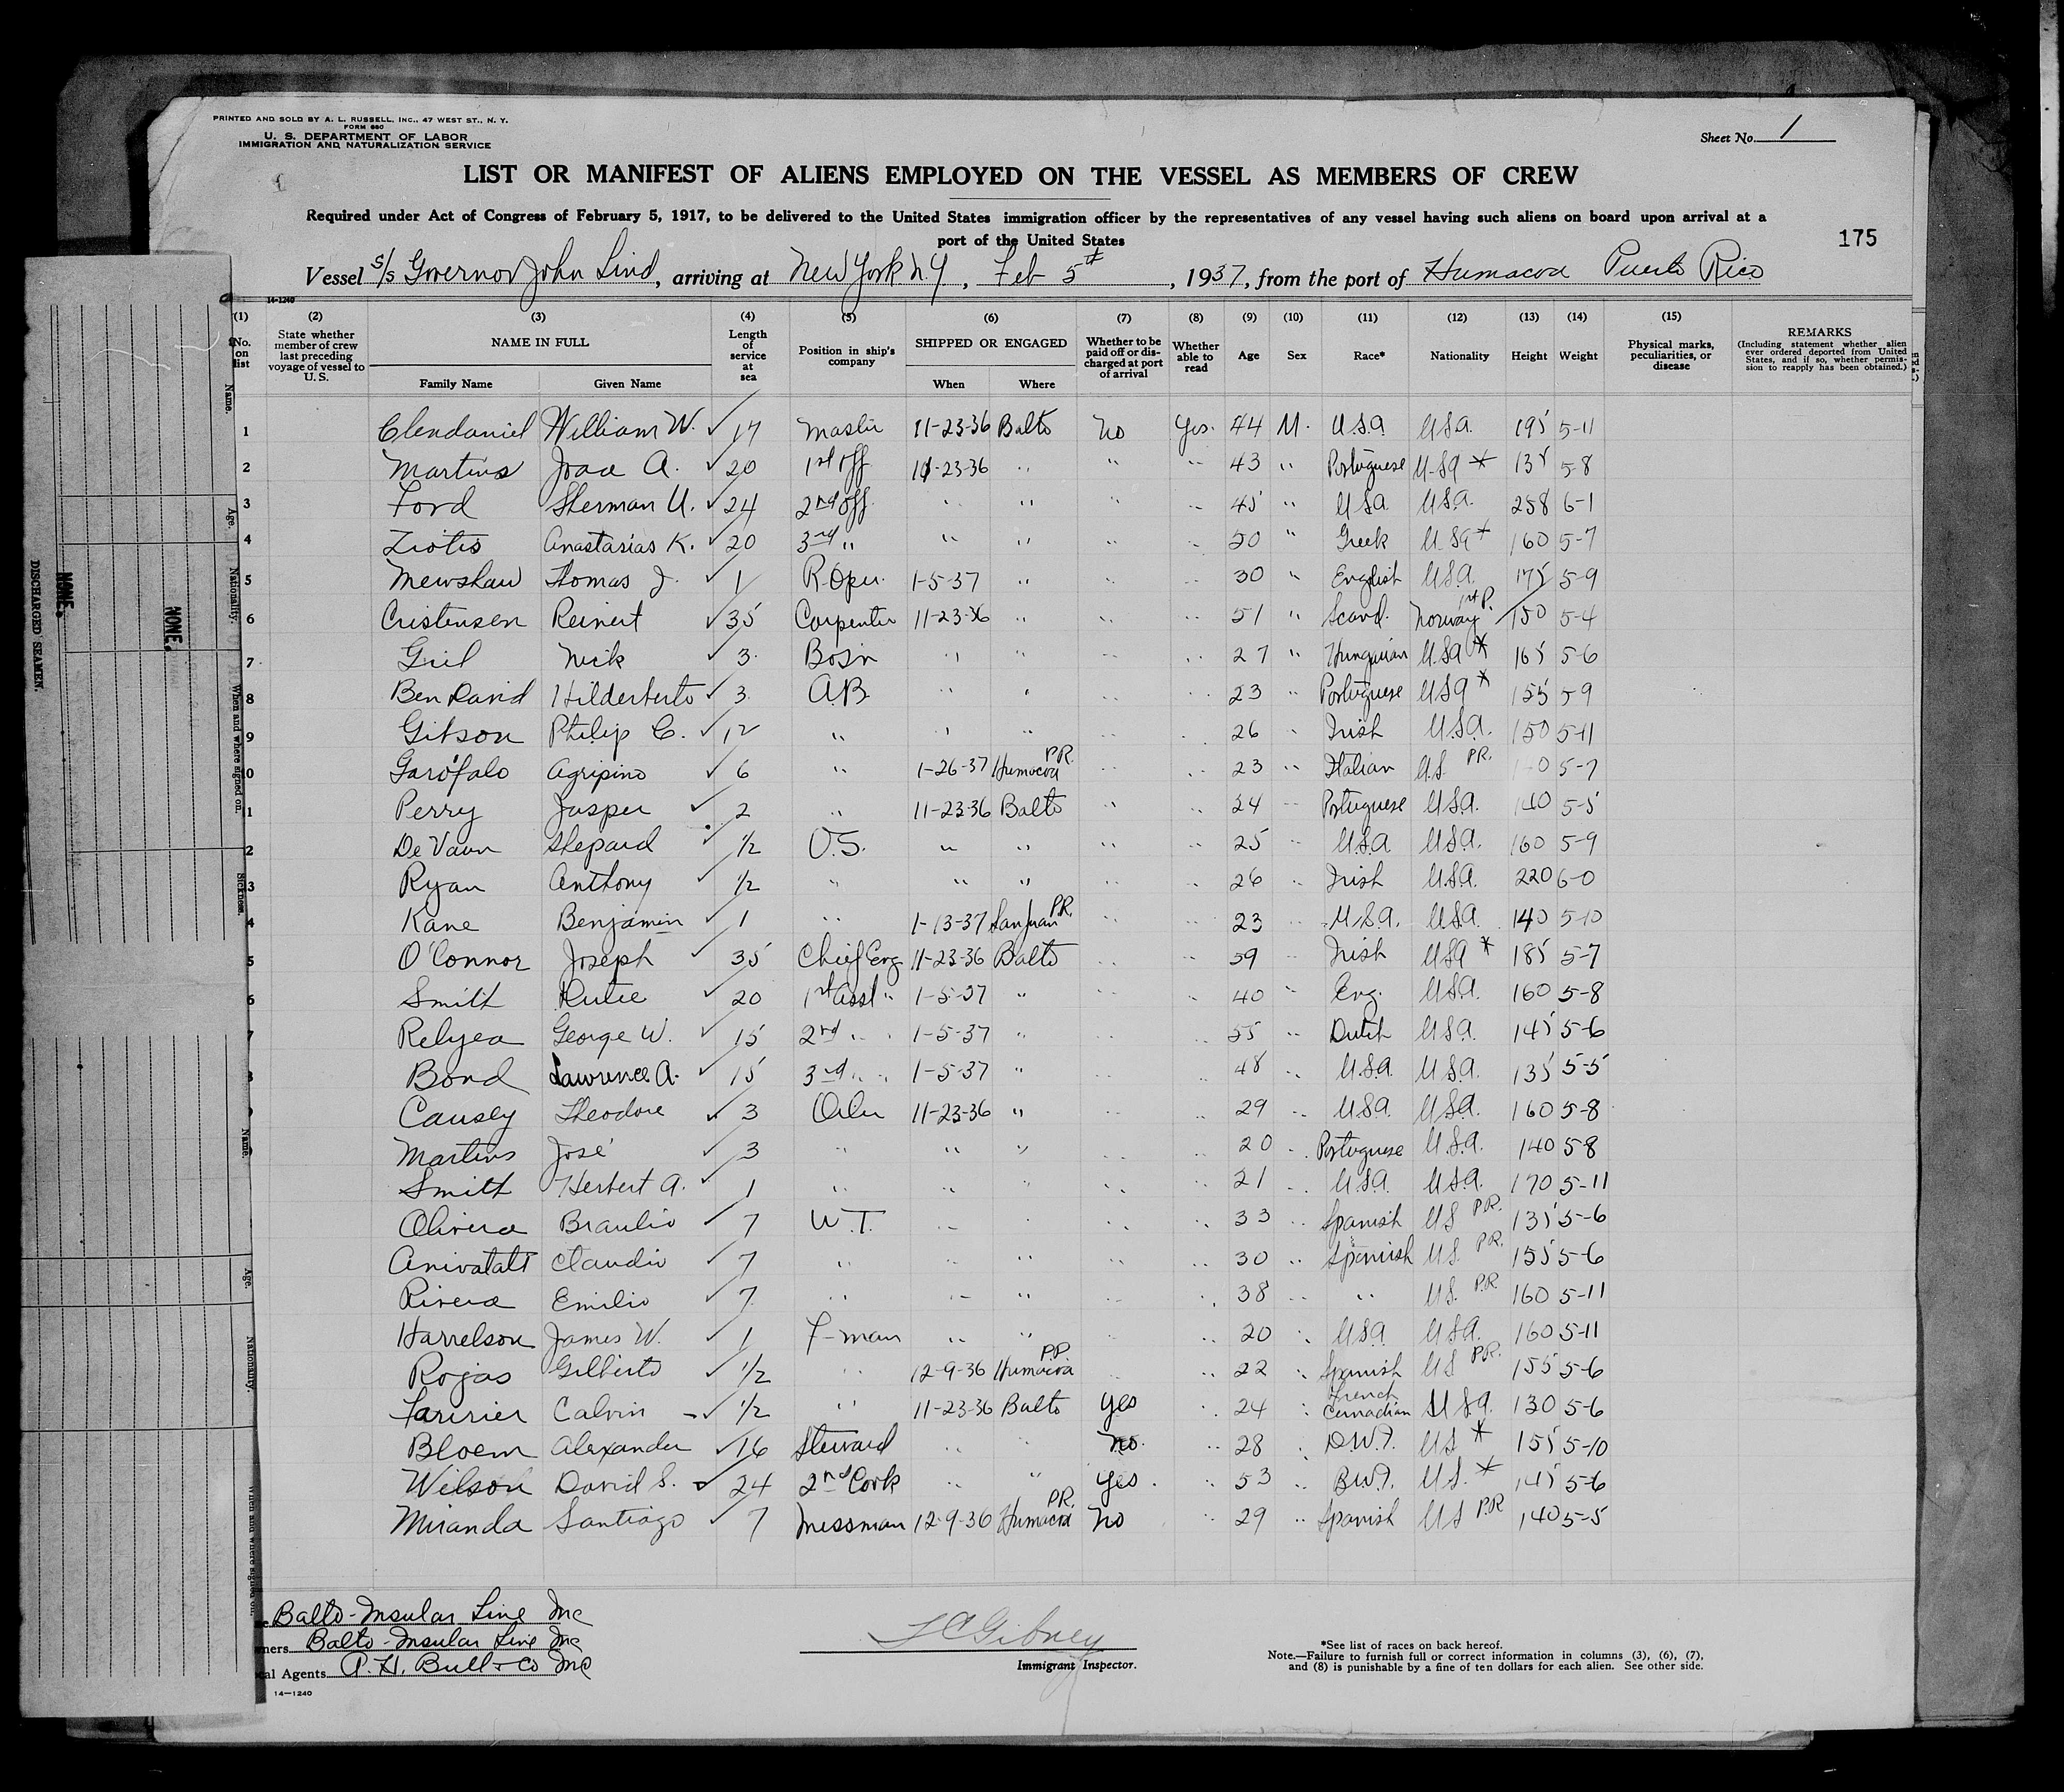 PRINTED AND SOLD BY A. L. RUSSELL, INC., 47 WEST ST., N. Y.
FORM 680
U. S. DEPARTMENT OF LABOR
IMMIGRATION AND NATURALIZATION SERVICE
Sheet No. 1
LIST OR MANIFEST OF ALIENS EMPLOYED ON THE VESSEL AS MEMBERS OF CREW
Required under Act of Congress of February 5, 1917, to be delivered to the United States immigration officer by the representatives of any vessel having such aliens on board upon arrival at a
port of the United States
175
Vessel S/S Governor John Lind, arriving at New York N.Y, Feb 5th, 1937, from the port of Humacoa Puerto Rico
14-1240
(1) (2) (3) (4) (5) (6) (7) (8) (9) (10) (11) (12) (13) (14) (15)
No. on list State whether member of crew last preceding voyage of vessel to U.S. NAME IN FULL Length of service at sea Position in ship's company SHIPPED OR ENGAGED Whether to be paid off or discharged at port of arrival Whether able to read Age Sex Race* Nationality Height Weight Physical marks, peculiarities, or disease REMARKS (Including statement whether alien ever ordered deported from United States, and if so, whether permission to reapply has been obtained.)
Family Name Given Name When Where
1 Clendaniel William W. ✓ 17 Master 11-23-36 Balto No Yes. 44 M. U.S.A. U.S.A. 195 5-11
2 Martins Joao A. ✓ 20 1st Off 11-23-36 " " " 43 " Portuguese U.S.A * 135 5-8
3 Ford Sherman U. ✓ 24 2nd Off. " " " " 45 " U.S.A. U.S.A. 258 6-1
4 Ziotis Anastasias K. ✓ 20 3rd " " " " " 50 " Greek U.S.A * 160 5-7
5 Mewshaw Thomas J. ✓ 1 R. Oper. 1-5-37 " " " 30 " English U.S.A. 175 5-9
6 Cristensen Reinert ✓ 35 Carpenter 11-23-36 " " " 51 " Scand. Norway 1st P. 150 5-4
7 Gril Nick ✓ 3 Bos'n " " " " 27 " Hungarian U.S.A * 165 5-6
8 Ben David Hilderberto ✓ 3 A.B. " " " " 23 " Portuguese U.S.A * 155 5-9
9 Gibson Philip C. ✓ 12 " " " " " 26 " Irish U.S.A. 150 5-11
10 Garófalo Agripino ✓ 6 " 1-26-37 Humacoa P.R. " " 23 " Italian U.S. P.R. 5-7
1 Perry Jasper ✓ 2 " 11-23-36 Balto " " 24 " Portuguese U.S.A. 140 5-5
2 De Vaun Shepard ✓ 1/2 O.S. " " " " 25 " U.S.A U.S.A. 160 5-9
3 Ryan Anthony ✓ 1/2 " " " " " 26 " Irish U.S.A. 220 6-0
4 Kane Benjamin ✓ 1 " 1-13-37 San Juan P.R. " " 23 " U.S.A. U.S.A. 140 5-10
5 O'Connor Joseph ✓ 35 Chief Eng 11-23-36 Balto " " 59 " Irish U.S.A * 185 5-7
6 Smith ✓ 20 1st Asst " 1-5-37 " " " 40 " Eng. U.S.A. 160 5-8
7 Relyea George W. ✓ 15 2nd " " 1-5-37 " " " 55 " Dutch U.S.A. 145 5-6
8 Bond Lawrence A. ✓ 15 3rd " " 1-5-37 " " " 48 " U.S.A. U.S.A. 135 5-5
9 Causey Theodore ✓ 3 Oiler 11-23-36 " " " 29 " U.S.A. U.S.A. 160 5-8
Martins José ✓ 3 " " " " " 20 " Portuguese U.S.A. 140 5-8
Smith Herbert A. ✓ 1 " " " " " 21 " U.S.A. U.S.A. 170 5-11
Olivera Braulio ✓ 7 W.T. " " " " 33 " Spanish U.S P.R. 135 5-6
Claudio ✓ 7 " " " " " 30 " Spanish U.S. P.R. 155 5-6
Rivera Emilio ✓ 7 " " " " " 38 " " U.S. P.R 160 5-11
Harrelson James W. ✓ 1 F-man " " " " 20 " U.S.A U.S.A. 160 5-11
Rojas Gilberto ✓ 1/2 " 12-9-36 Humacoa P.R. " " 22 " Spanish U.S P.R. 155 5-6
Calvin ✓ 1/2 " 11-23-36 Balto Yes " 24 " French Canadian U.S.A. 130 5-6
Bloem Alexander ✓ 16 Steward " " No. " 28 " D.W.I. U.S * 155 5-10
Wilson David S. ✓ 24 2nd Cook " " Yes. " 53 " B.W.I. U.S. * 145 5-6
Miranda Santiago ✓ 7 Messman 12-9-36 Humacoa P.R. No " 29 " Spanish U.S P.R 140 5-5
Balto-Insular Line Inc
ners Balto-Insular Line Inc
al Agents A. H. Bull & Co Inc
14-1240
Immigrant Inspector.
*See list of races on back hereof.
Note.—Failure to furnish full or correct information in columns (3), (6), (7),
and (8) is punishable by a fine of ten dollars for each alien. See other side.
DISCHARGED SEAMEN.
NONE.
NONE.
Name.
Age.
Nationality.
When and where signed on.
Sickness.
Name.
Age.
Nationality.
When and where signed on.